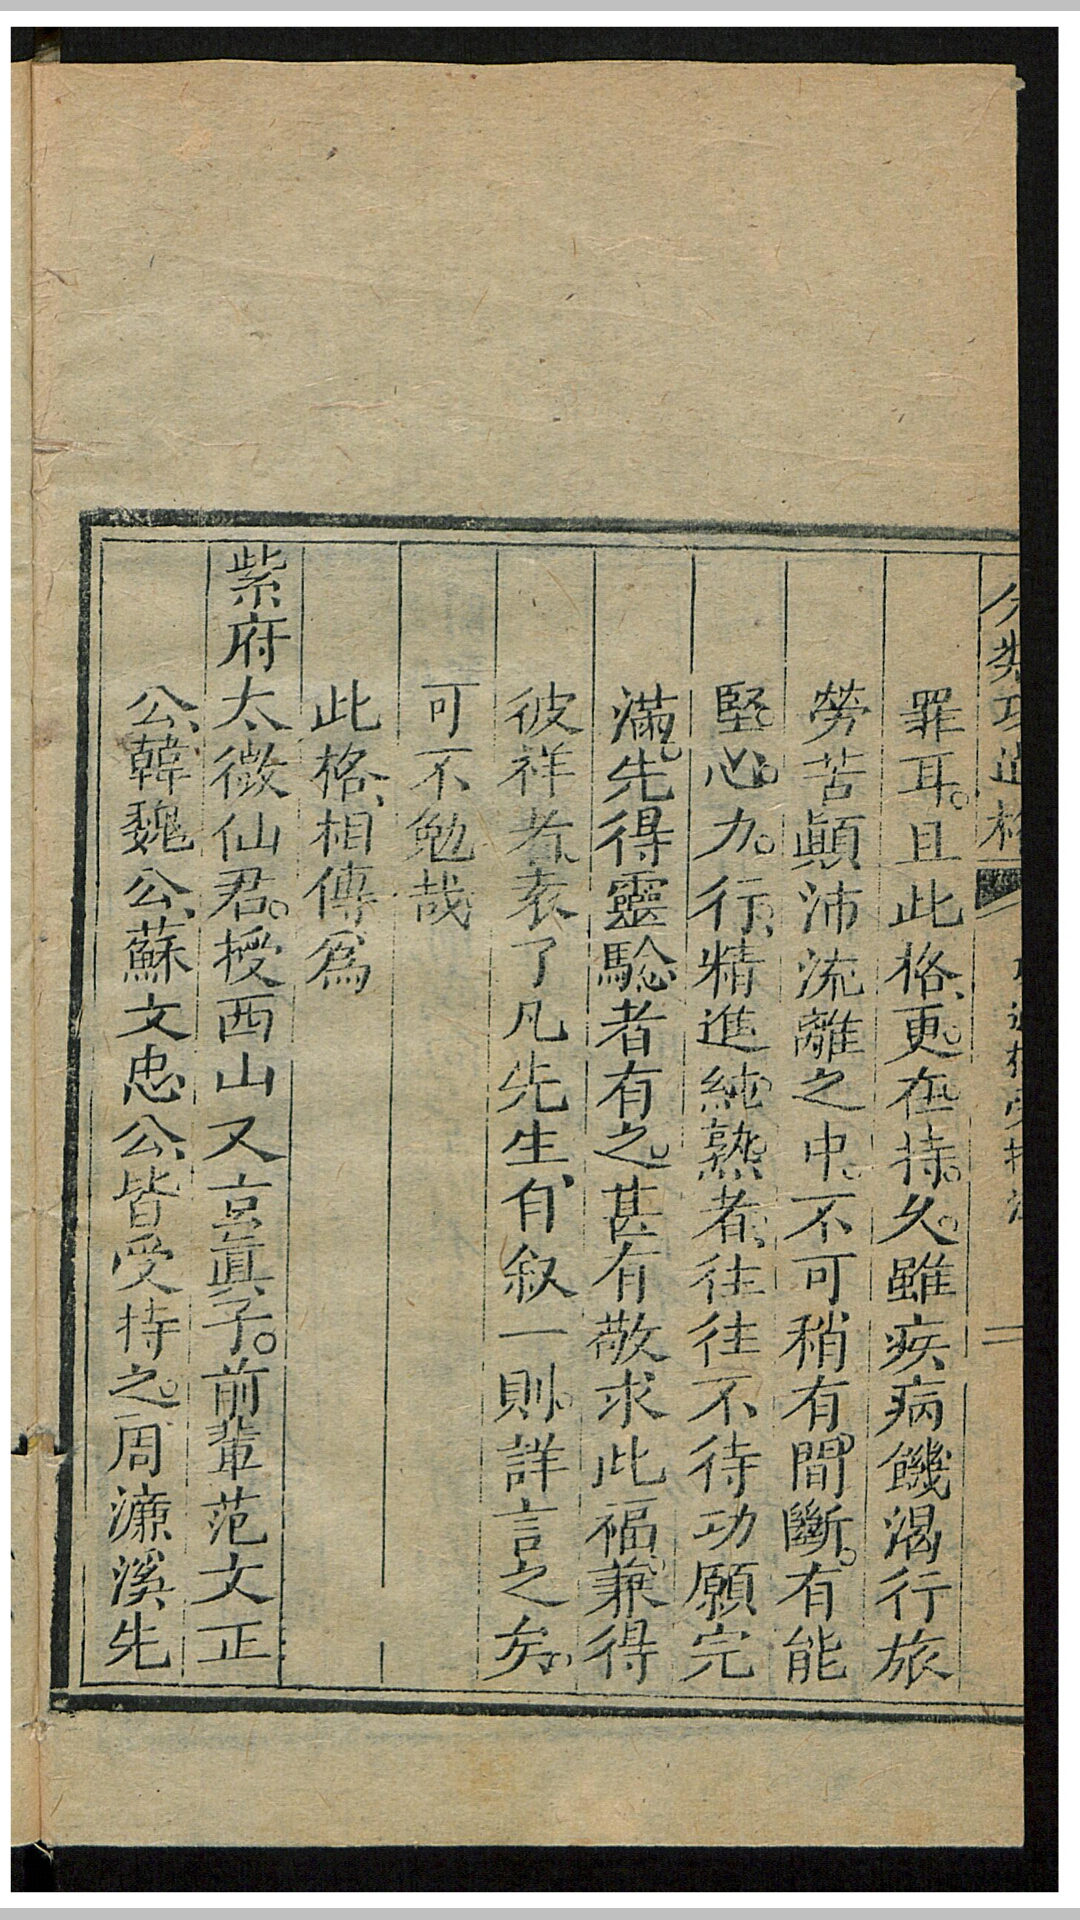 分類功過格
罪耳。且此格、更在持久。雖疾病饑渴行旅
勞苦顚沛流離之中。不可稍有間斷。有能
堅心力行、精進純熟者、往往不待功願完
滿。先得靈騐者有之。甚有敬求此福。兼得
彼祥者、袁了凡先生、自叙一則。詳言之矣、
可不勉哉
此格、相傳爲
紫府太微仙君。授西山又玄眞子。前輩范文正
公、韓魏公、蘇文忠公、皆受持之。周濂溪先